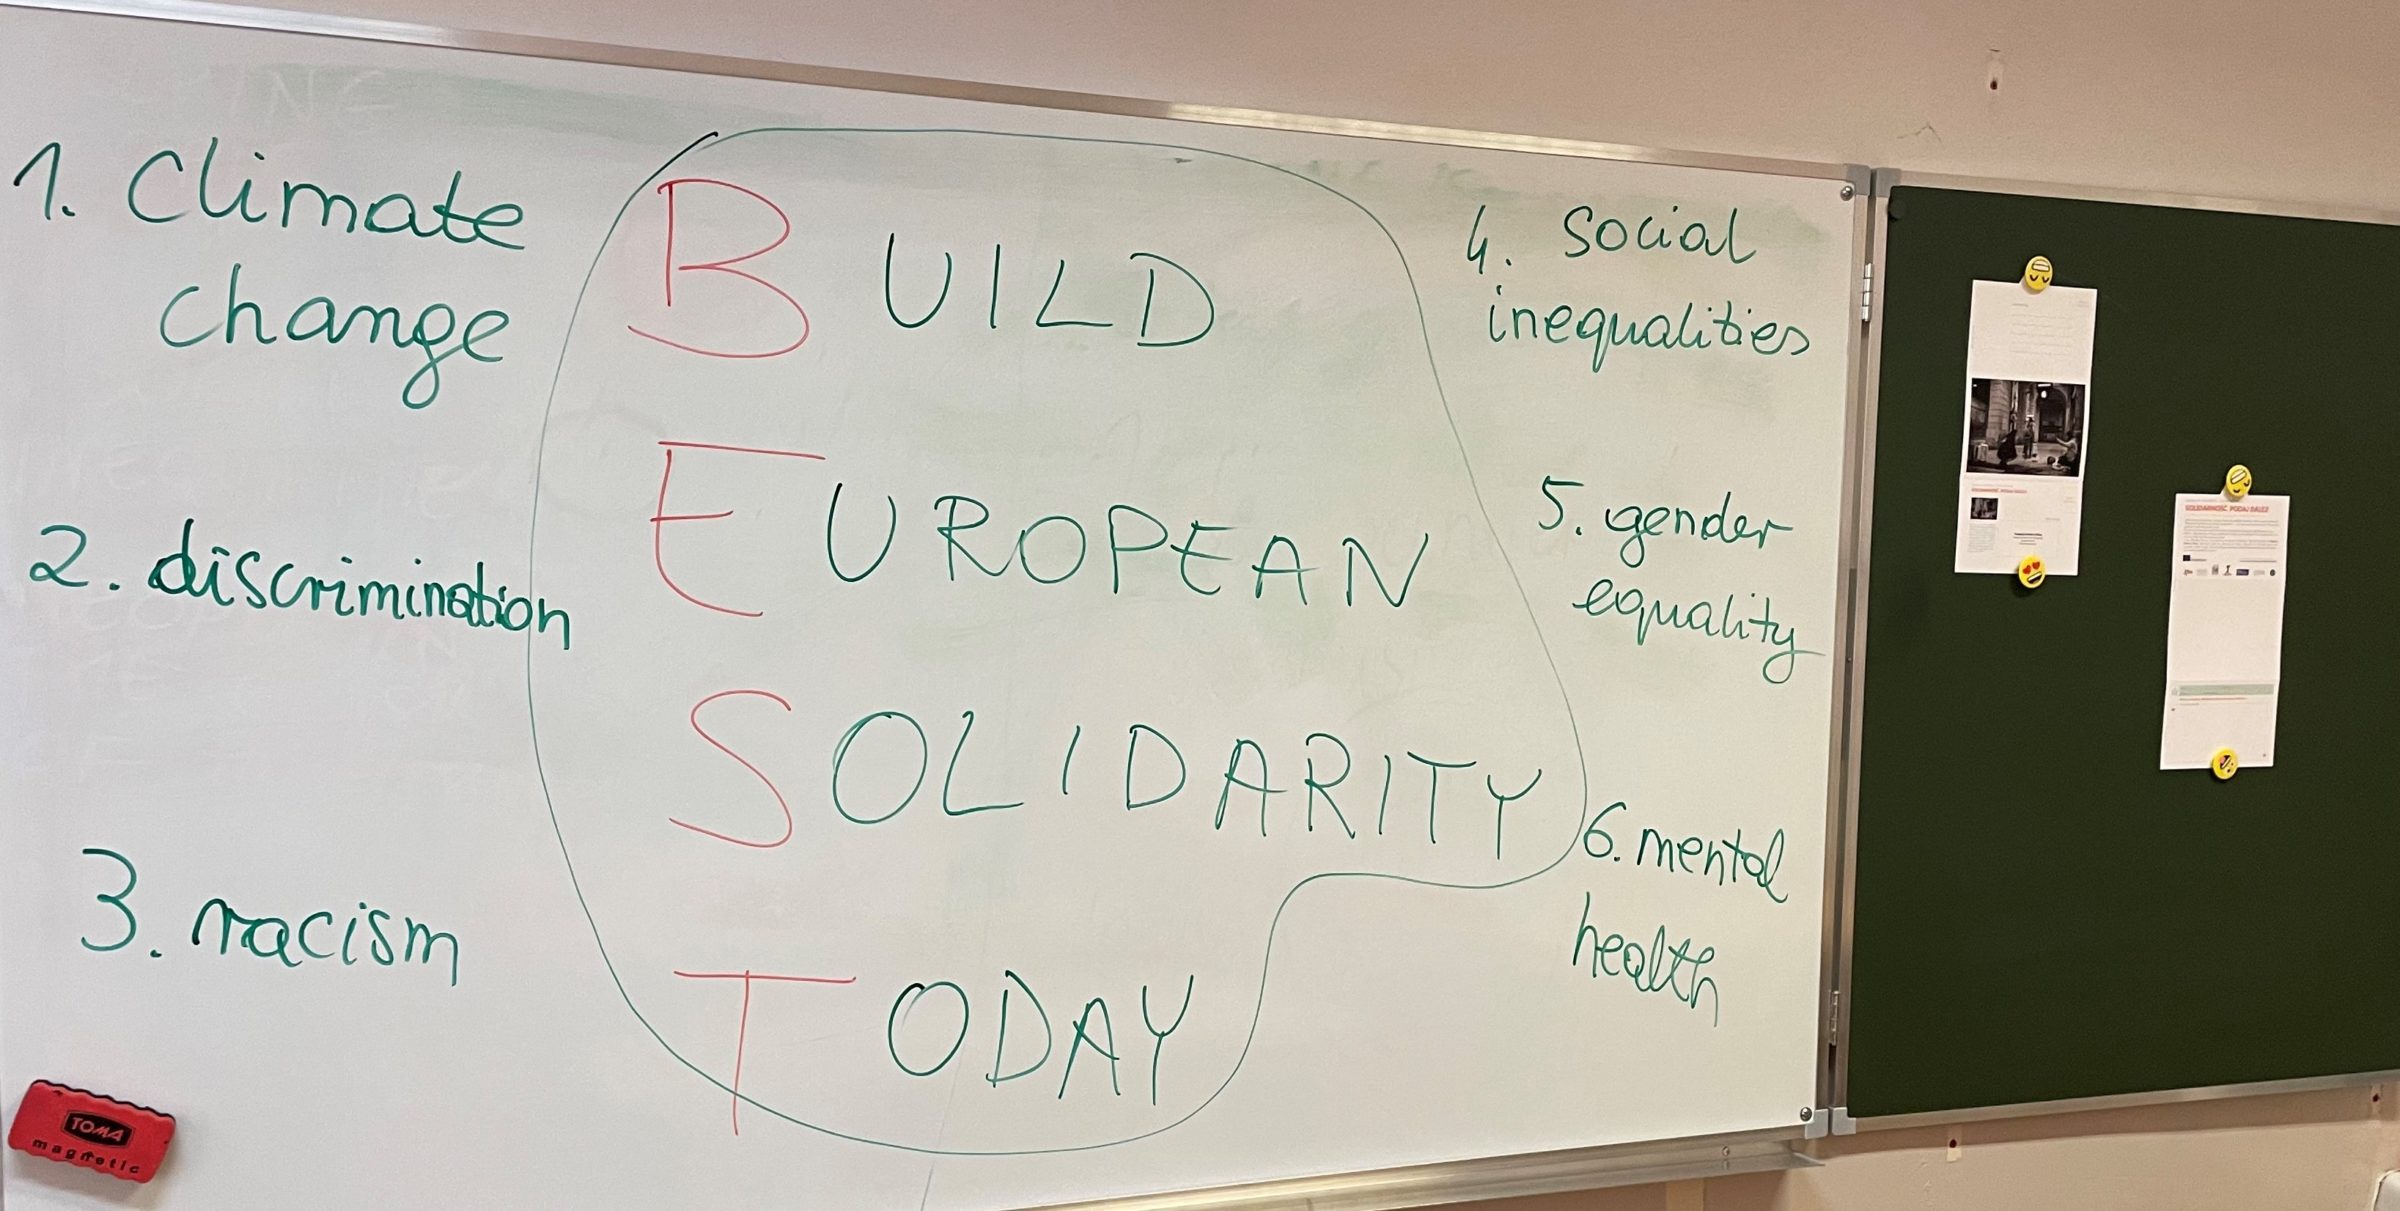 1. Climate
change
2. discrimination
3. racism
BUILD
EUROPEAN
SOLIDARITY
TODAY
4. social
inequalities
5. gender
equality
6. mental
health
TOMA
magnetic
SOLIDARNOŚĆ. PODAJ DALEJ